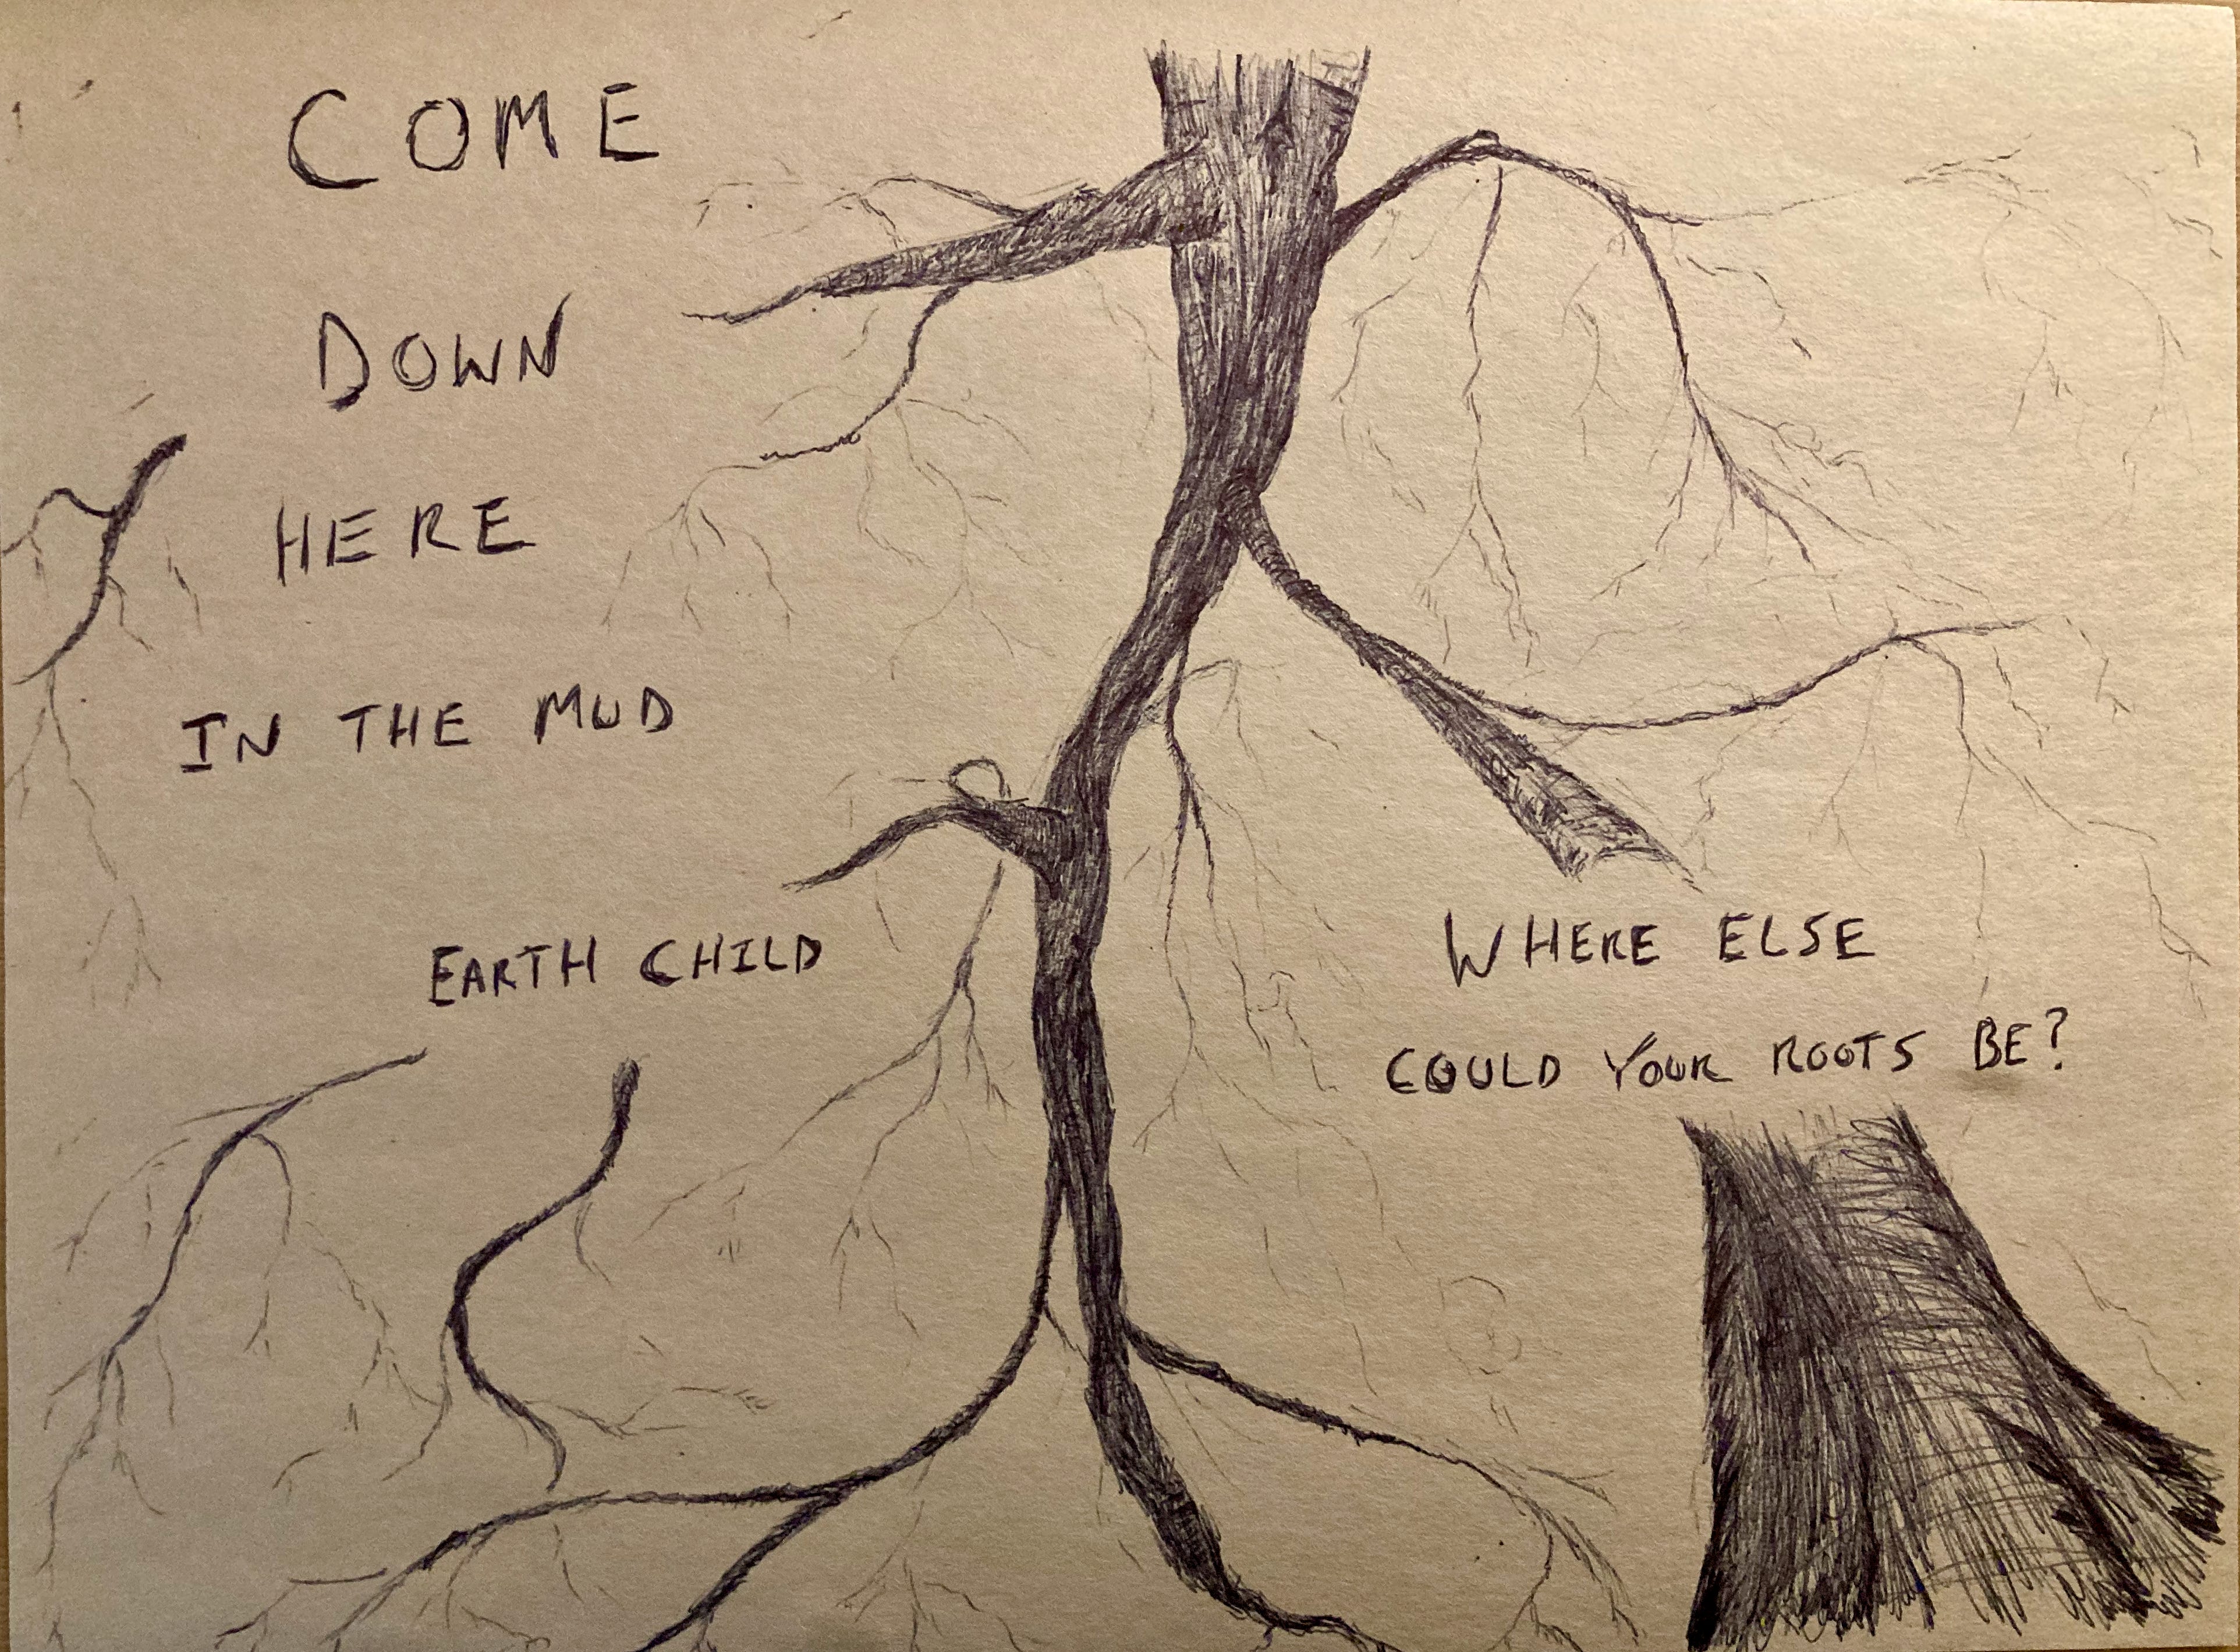 COME
DOWN
HERE
IN THE MUD
EARTH CHILD
WHERE ELSE
COULD YOUR ROOTS BE?